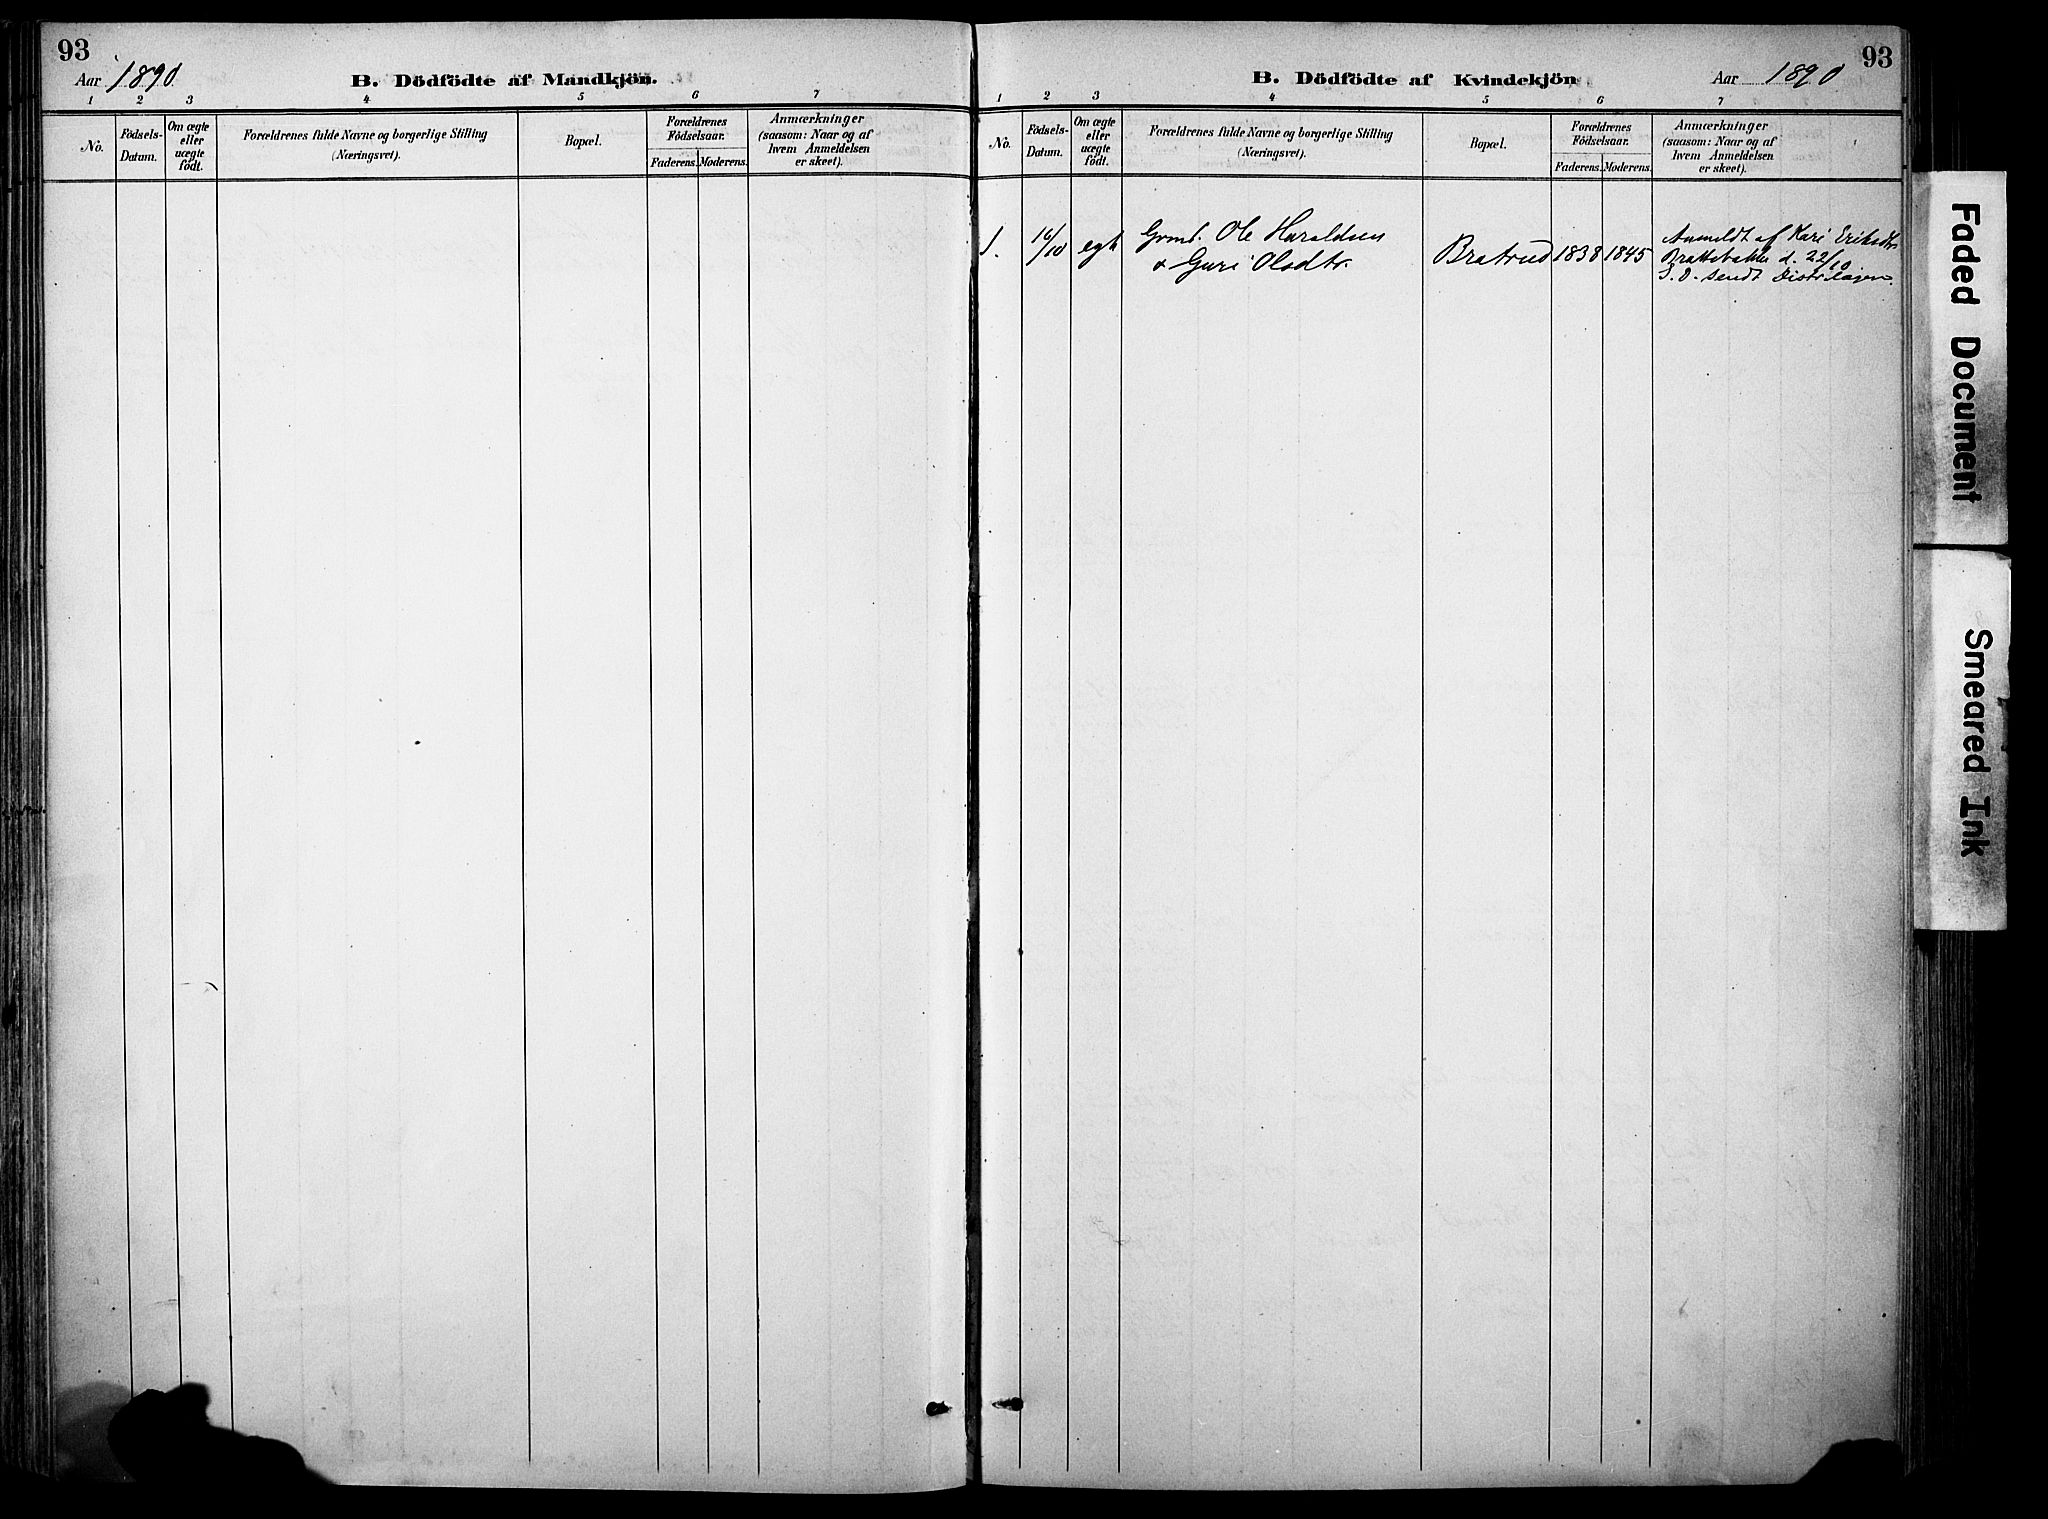 93
Aar 1890.
B. Dödfödte af Mandkjön.
1 2 3 4 5 6 7
No.
Födsels-
Datum.
Om ægte
eller
uægte
födt.
Forældrenes fulde Navne og borgerlige Stilling
(Næringsvei).
Bopæl.
Forældrenes
Födselsaar.
Faderens. Moderens.
Anmærkninger
(saasom: Naar og af
hvem Anmeldelsen
er skeet).
93
B. Dödfödte af Kvindekjön
Aar 1890
1 2 3 4 5 6 7
No.
Födsels-
Datum.
Om ægte
eller
uægte
födt.
Forældrenes fulde Navne og borgerlige Stilling
(Næringsvei).
Bopæl.
Forældrenes
Födselsaar.
Faderens. Moderens.
Anmærkninger
(saasom: Naar og af
hvem Anmeldelsen
er skeet).
1.
16/10
egte
Grmd. Ole Haraldsen
& Guri Olsdtr.
Bratrud
1838
1845
Anmeldt af Kari Eriksdtr
Brattebakke d. 22/10
S. D. sendt Distr.lægen.
Faded Document
Smeared Ink